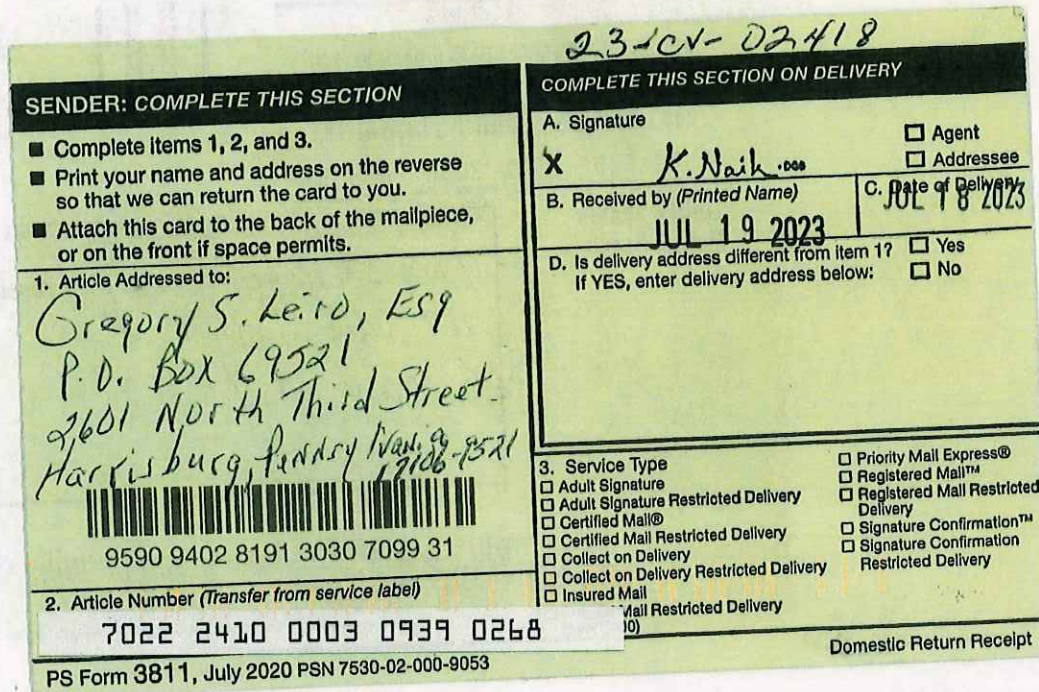 23-CV-02418
SENDER: COMPLETE THIS SECTION
■ Complete items 1, 2, and 3.
■ Print your name and address on the reverse
so that we can return the card to you.
■ Attach this card to the back of the mailpiece,
or on the front if space permits.
1. Article Addressed to:
Gregory S. Leiro, Esq
P.O. Box 69521
2601 North Third Street
Harrisburg, Pennsylvania
17106-9521
9590 9402 8191 3030 7099 31
2. Article Number (Transfer from service label)
7022 2410 0003 0939 0268
PS Form 3811, July 2020 PSN 7530-02-000-9053
COMPLETE THIS SECTION ON DELIVERY
A. Signature
X K. Naik
☐ Agent
☐ Addressee
B. Received by (Printed Name)
JUL 19 2023
C. Date of Delivery
JUL 18 2023
D. Is delivery address different from item 1? ☐ Yes
If YES, enter delivery address below: ☐ No
3. Service Type
☐ Adult Signature
☐ Adult Signature Restricted Delivery
☐ Certified Mail®
☐ Certified Mail Restricted Delivery
☐ Collect on Delivery
☐ Collect on Delivery Restricted Delivery
☐ Insured Mail
Mail Restricted Delivery
00)
☐ Priority Mail Express®
☐ Registered Mail™
☐ Registered Mail Restricted
Delivery
☐ Signature Confirmation™
☐ Signature Confirmation
Restricted Delivery
Domestic Return Receipt